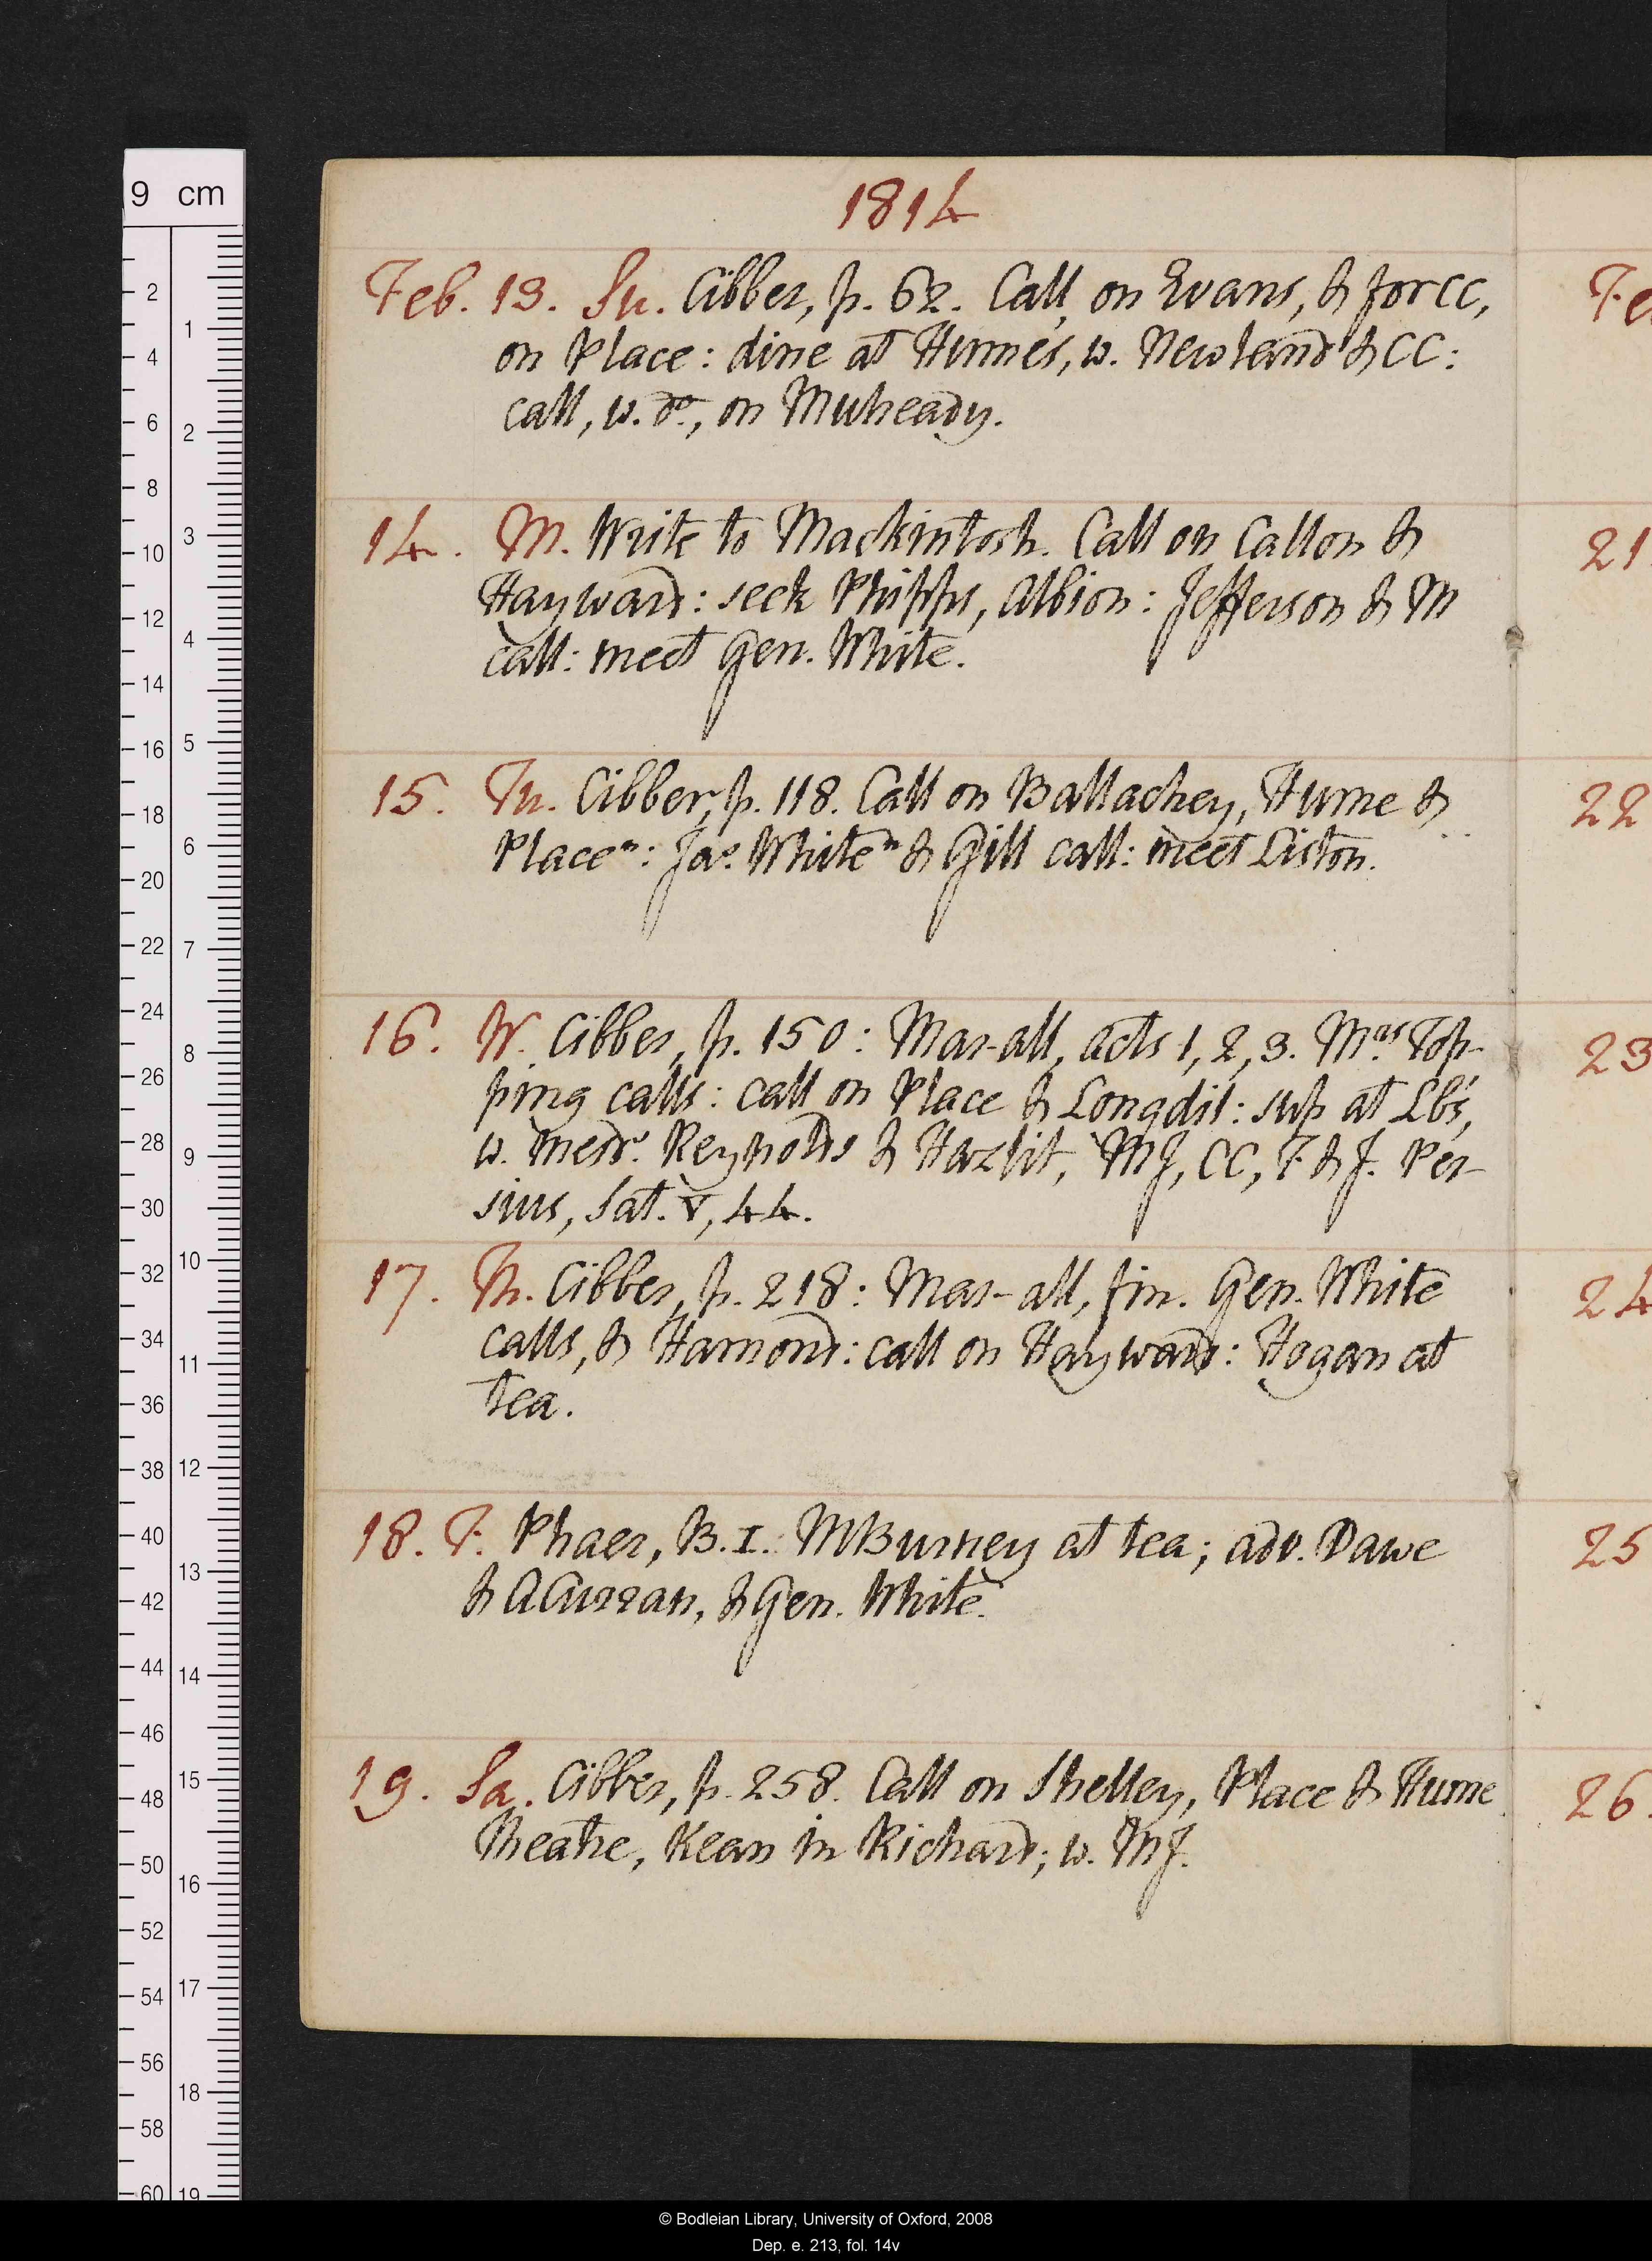 1814
Feb. 13. Su. Cibber, p. 62. Call on Evans, & for CC,
on Place: dine at Hume's, w. Newland & CC:
call, w. do., on Mulready.
14. M. Write to Mackintosh. Call on Callon &
Hayward: seek Phipps, Albion: Jefferson & M
call: meet Gen. White.
15. Tu. Cibber, p. 118. Call on Ballachey, Hume &
Place n: Jas. White n & Gill call: meet Liston.
16. W. Cibber, p. 150: Mar-all, acts 1, 2, 3. Mrs Top-
ping calls: call on Place & Longdil: sup at Lb's,
w. mesrs. Reynolds & Hazlit, MJ, CC, F. & J. Per-
sius, Sat. V, 44.
17. Th. Cibber, p. 218: Mar-all, fin. Gen. White
calls, & Hamond: call on Hayward: Hogan at
tea.
18. F. Phaer, B. I. MBurney at tea; adv. Dawe
& ACurran, & Gen. White.
19. Sa. Cibber, p. 258. Call on Shelley, Place & Hume
Theatre, Kean in Richard; w. MJ.
Fe
21.
22
23
24
25
26.
9 cm
2
4
6
8
10
12
14
16
18
20
22
24
26
28
30
32
34
36
38
40
42
44
46
48
50
52
54
56
58
60
1
2
3
4
5
6
7
8
9
10
11
12
13
14
15
16
17
18
19
© Bodleian Library, University of Oxford, 2008
Dep. e. 213, fol. 14v